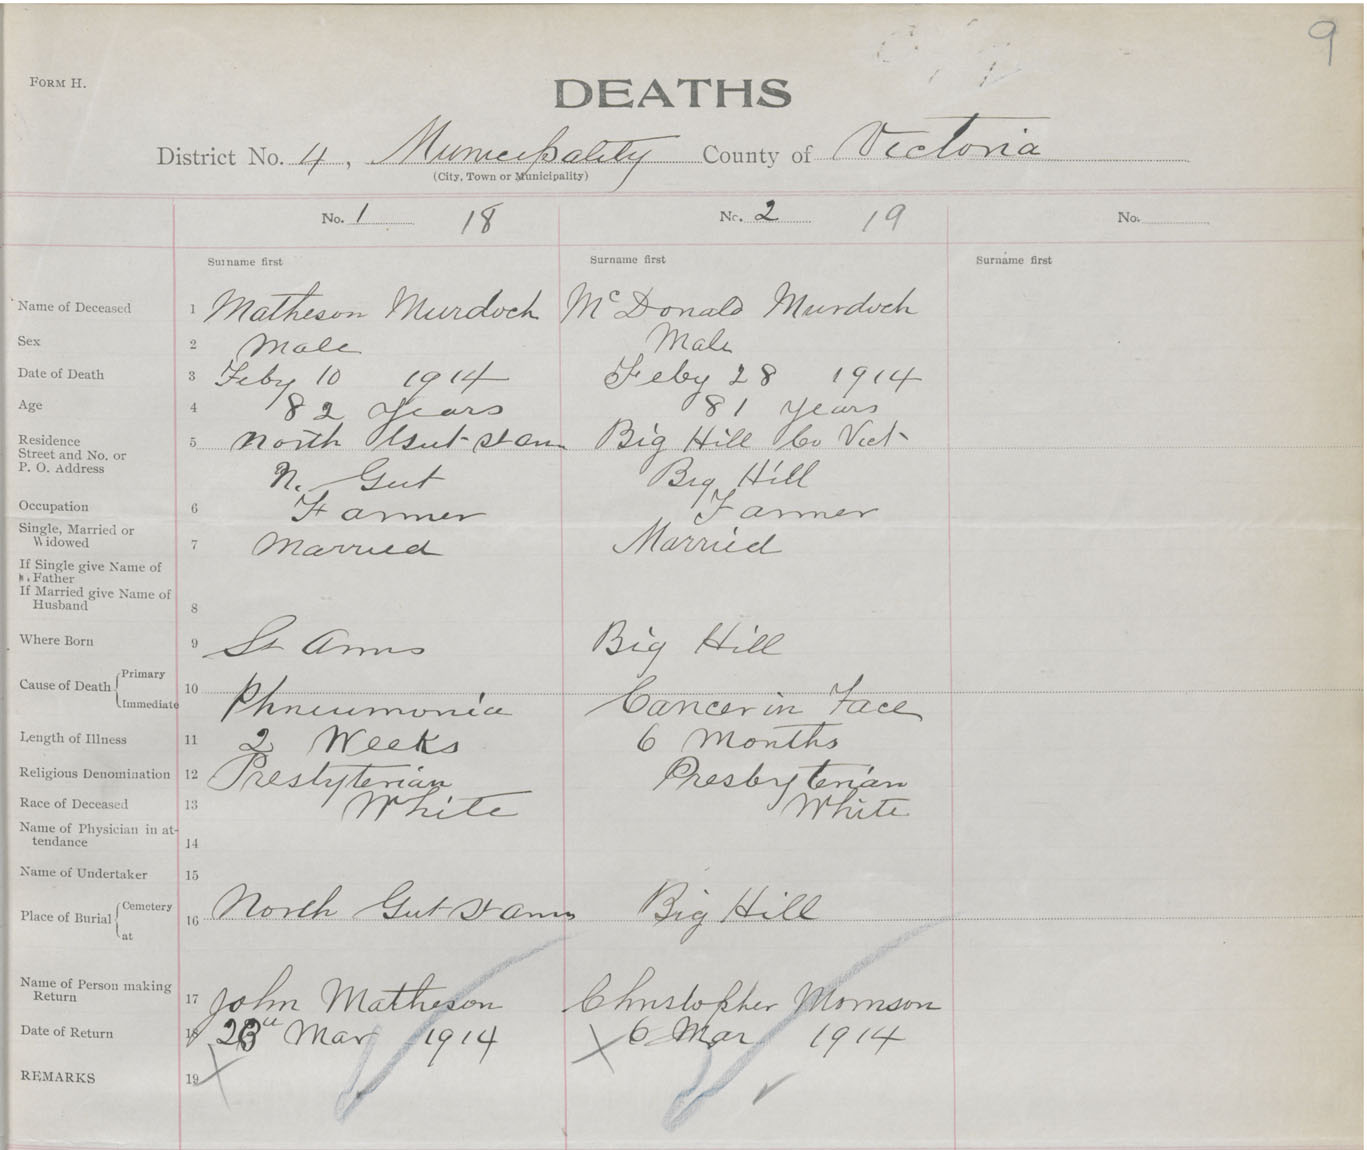 9
FORM H.
DEATHS
District No. 4, Municipality County of Victoria
(City, Town or Municipality)
No. 1 18 No. 2 19 No.
Surname first Surname first Surname first
Name of Deceased 1 Matheson Murdoch McDonald Murdoch
Sex 2 Male Male
Date of Death 3 Feby 10 1914 Feby 28 1914
Age 4 82 years 81 years
Residence 5 North Gut St Ann Big Hill Co Vict
Street and No. or
P. O. Address N. Gut Big Hill
Occupation 6 Farmer Farmer
Single, Married or
Widowed 7 Married Married
If Single give Name of
Father
If Married give Name of
Husband 8
Where Born 9 St Anns Big Hill
Cause of Death Primary 10
Immediate Phneumonia Cancer in Face
Length of Illness 11 2 Weeks 6 Months
Religious Denomination 12 Presbyterian Presbyterian
Race of Deceased 13 White White
Name of Physician in at-
tendance 14
Name of Undertaker 15
Place of Burial Cemetery 16 North Gut St Anns Big Hill
at
Name of Person making
Return 17 John Matheson Christopher Morrison
Date of Return 18 Mar 1914 6 Mar 1914
REMARKS 19